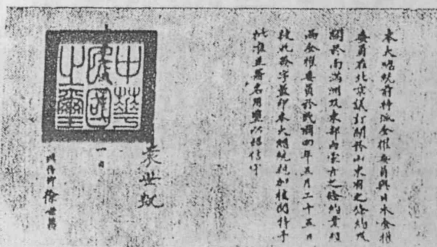 本大總統前特派全權委員與日本全權
委員在北京議訂關於山東省之條約及
關於南滿洲及東部內蒙古之條約業經
兩全權委員於民國四年五月二十五日
彼此簽字蓋印本大總統
批准並署名用璽以昭信守
中華民國之璽
袁世凱
一日
國務卿 徐世昌